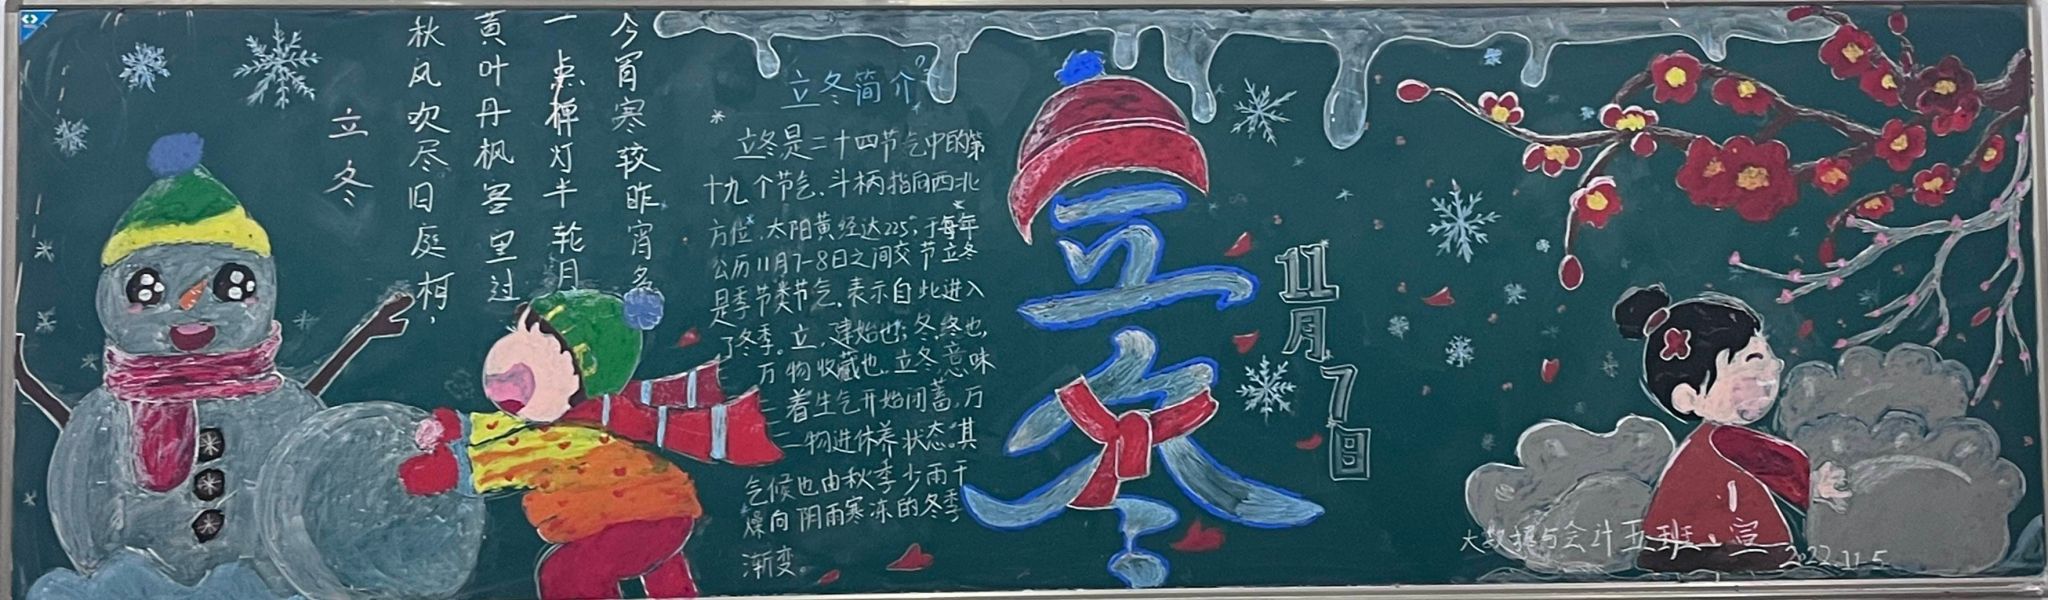 立冬
秋风吹尽旧庭柯,
黄叶丹枫客里过
一点禅灯半轮月
今宵寒较昨宵多
立冬简介
立冬是二十四节气中的第
十九个节气,斗柄指向西北
方位,太阳黄经达225°,于每年
公历11月7-8日之间交节立冬
是季节类节气,表示自此进入
了冬季。立,建始也;冬,终也,
万物收藏也。立冬,意味
着生气开始闭蓄,万
物进休养状态。其
气候也由秋季少雨干
燥向阴雨寒冻的冬季
渐变。
立冬
11月7日
大数据与会计五班、宣
2022.11.5